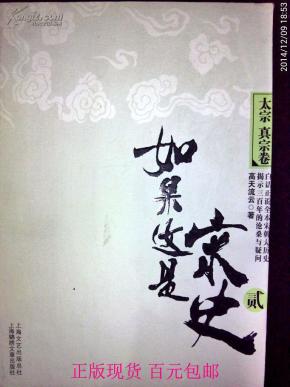 2014/12/09 18:53
太宗 真宗卷
白话正说全本宋朝大历史
揭示三百年的沧桑与疑问
高天流云◎著
如果这是
宋史
贰
上海文艺出版总社
上海锦绣文章出版社
正版现货 百元包邮